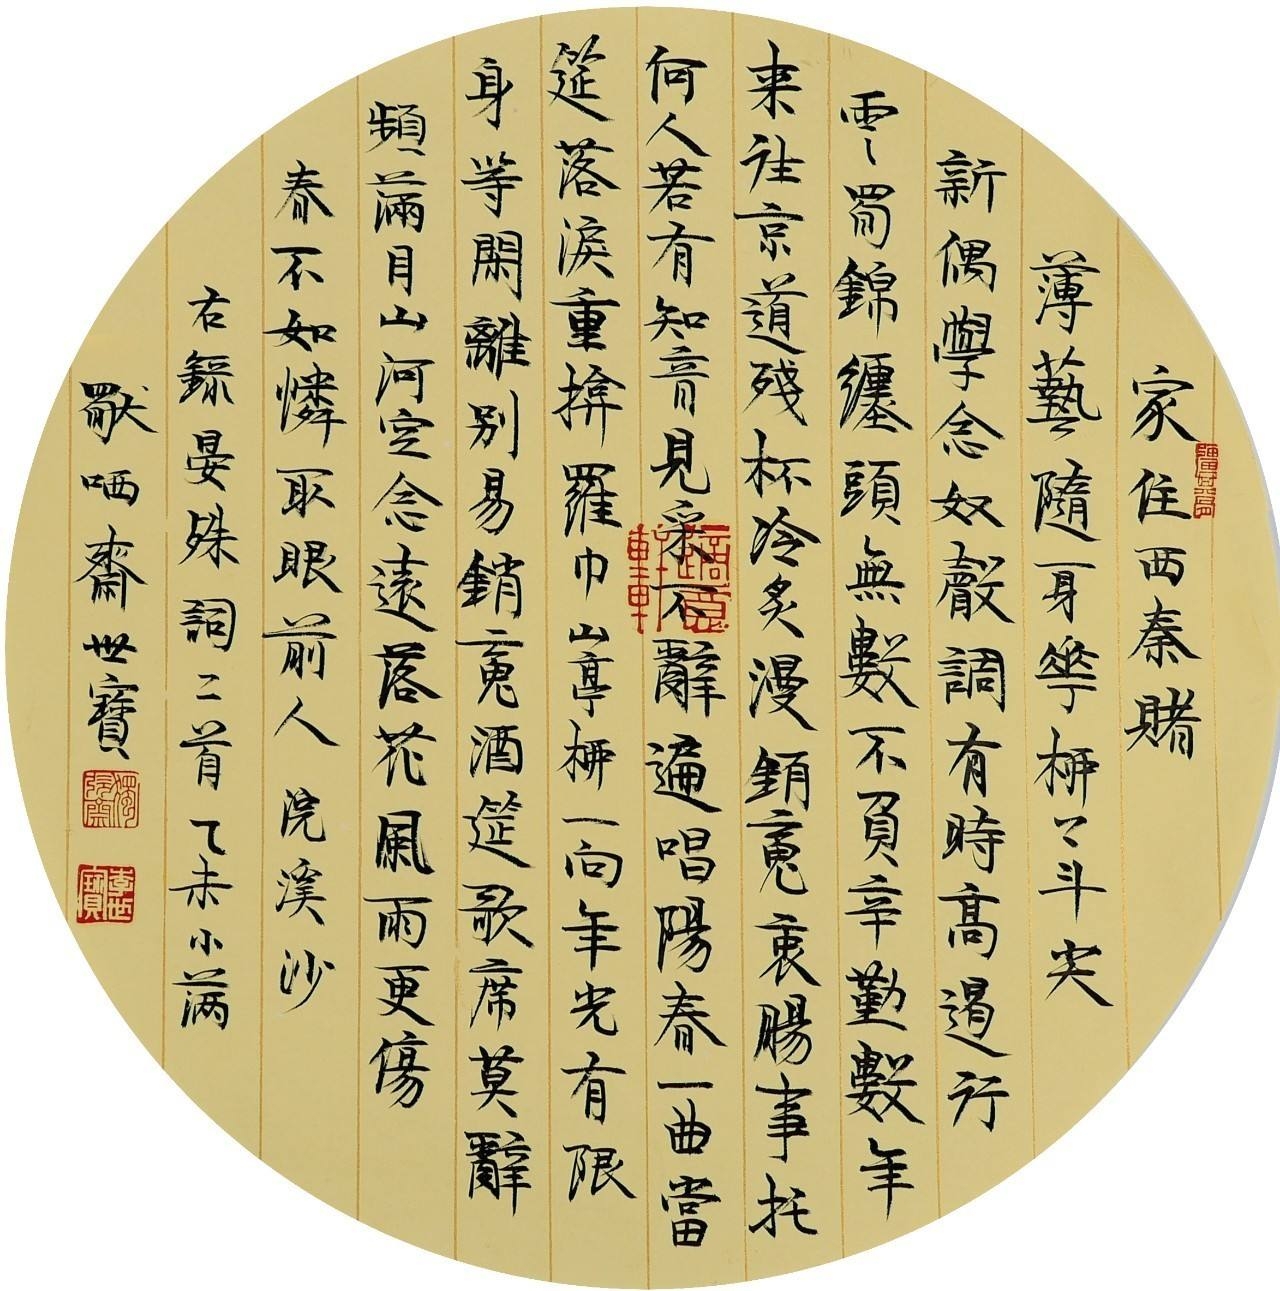 家住西秦賭
薄藝隨身花柳上斗尖
新偶學念奴聲調有時高遏行
雲雲蜀錦纏頭無數不負辛勤數年
来往京道殘杯冷炙漫銷魂衷腸事托
何人若有知音見采不辭遍唱陽春一曲當
筵落淚重掩羅巾山亭柳一向年光有限
身等閑離別易銷魂酒筵歌席莫辭
頻滿目山河空念遠落花風雨更傷
春不如憐取眼前人浣溪沙
右錄晏殊詞二首乙未小滿
獻哂齋世寶
李世寶